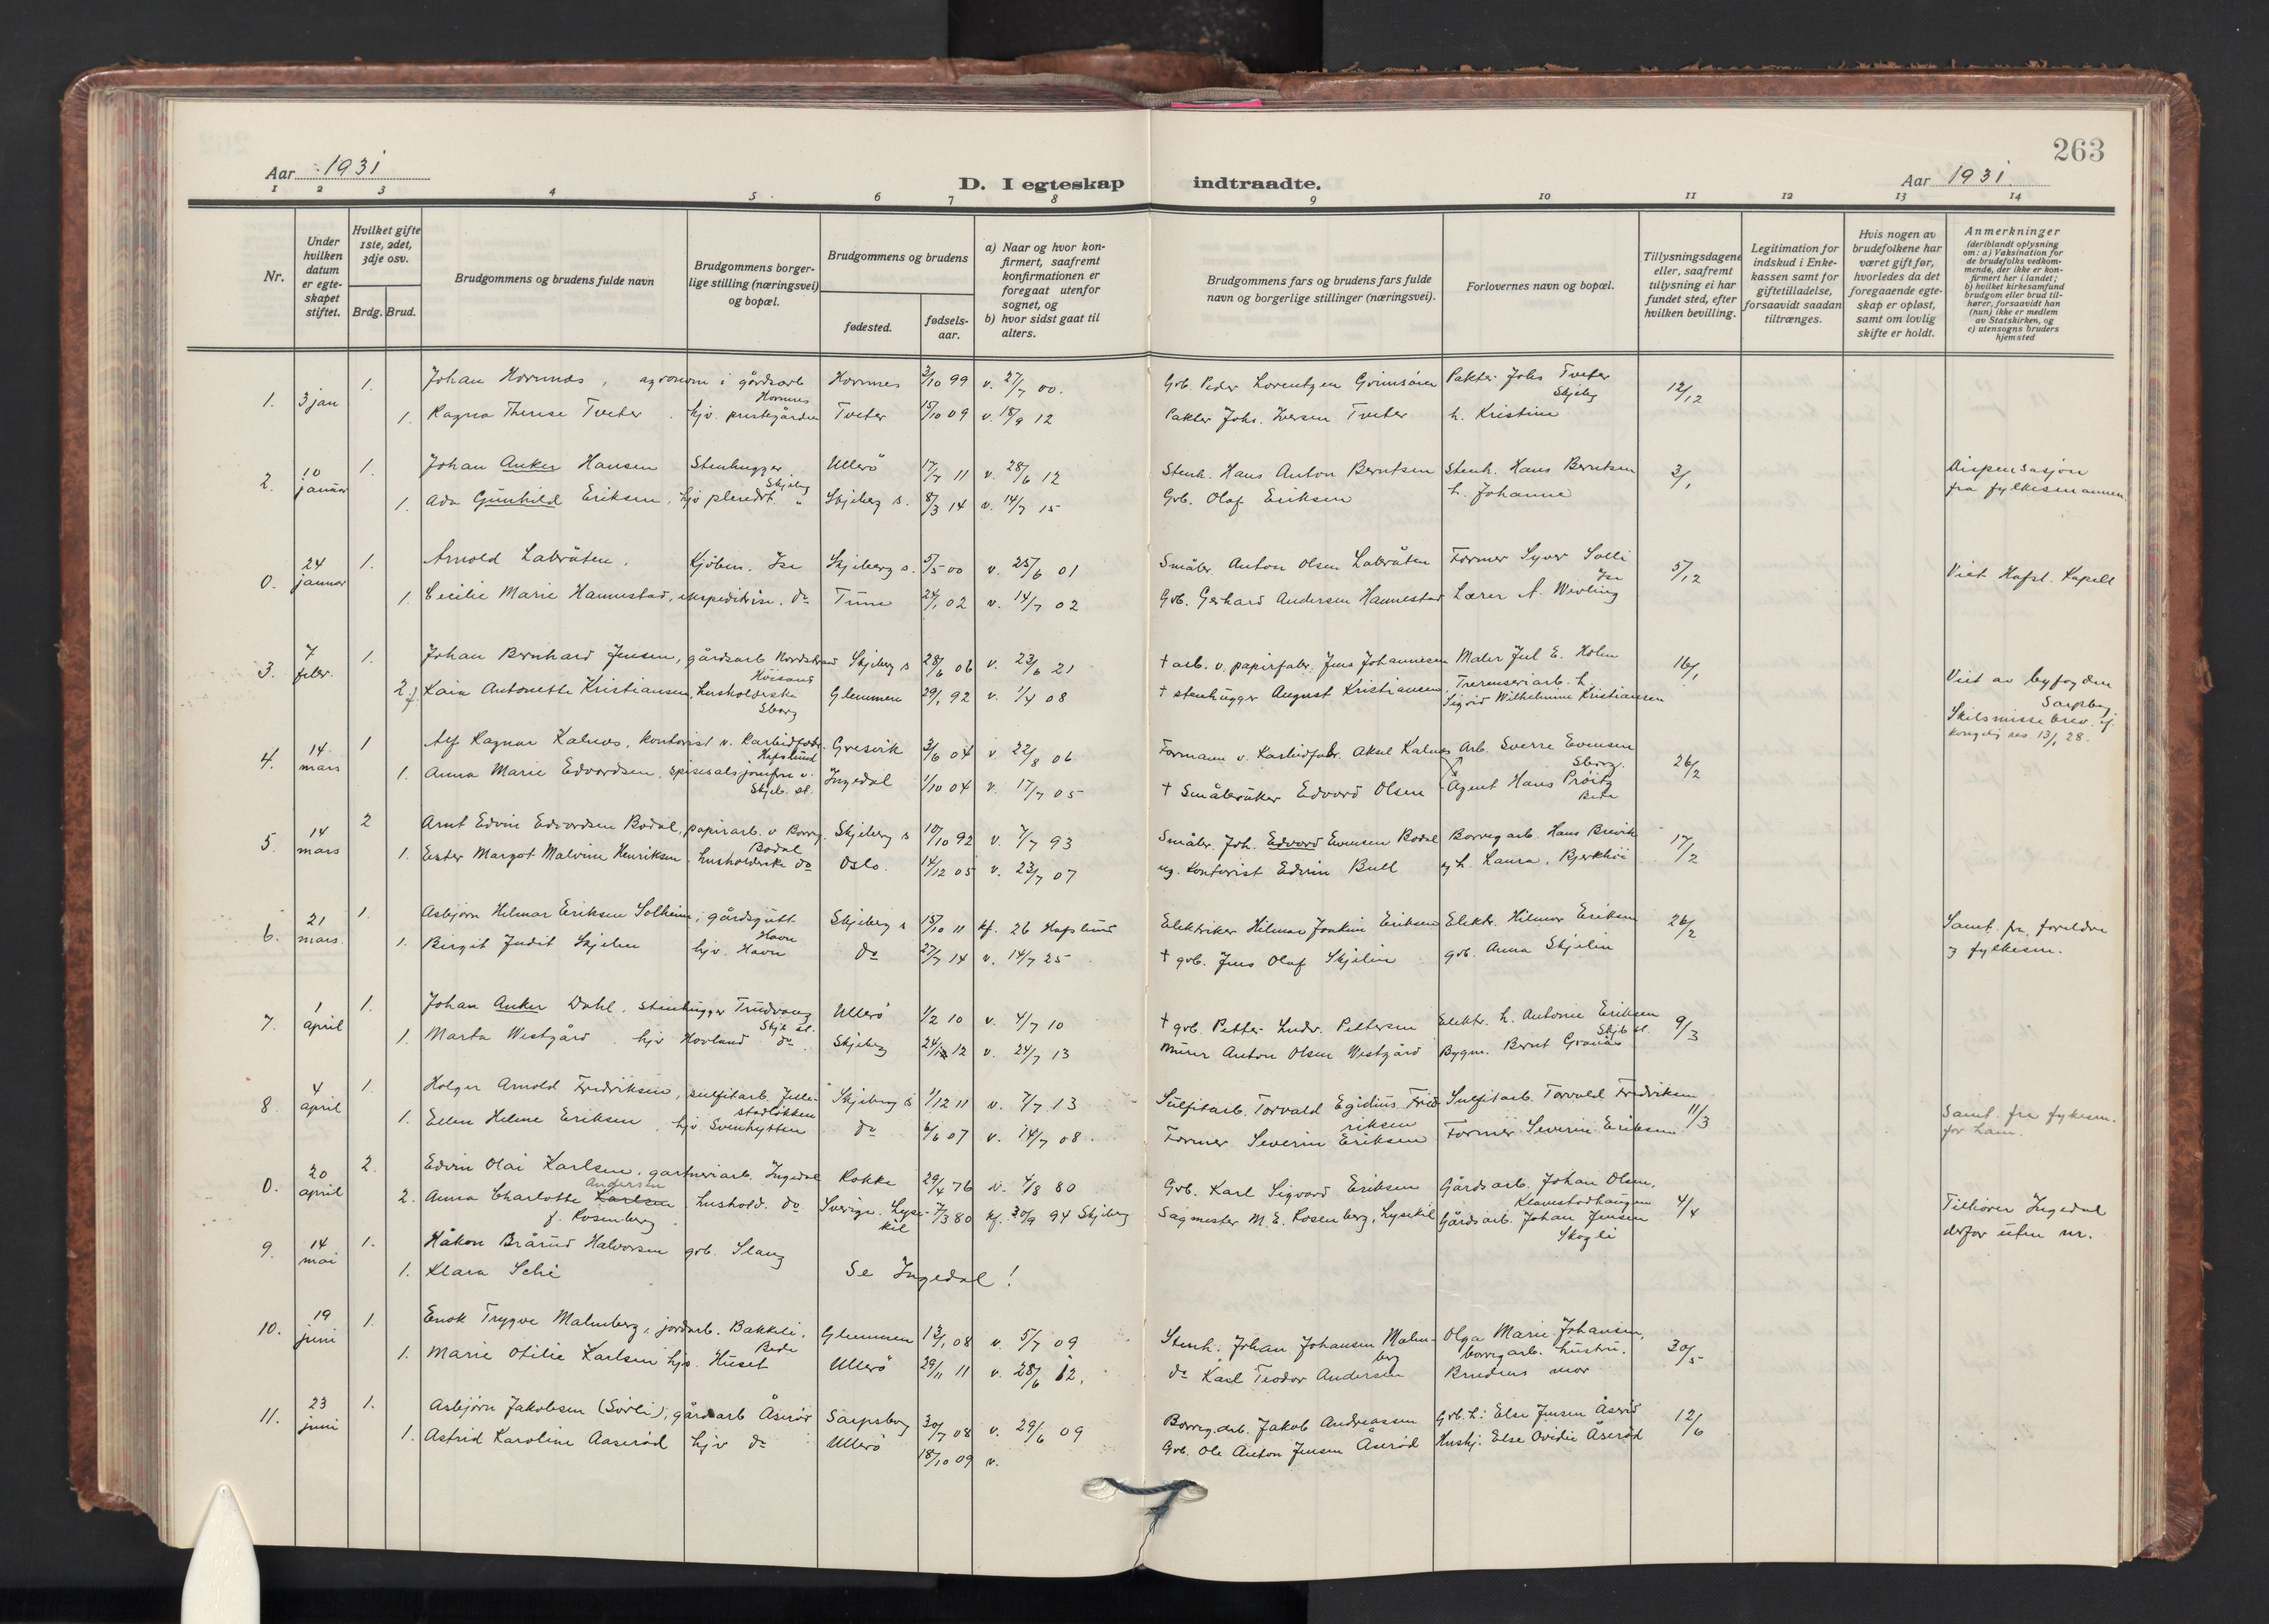 263
Aar 1931
D. I egteskap indtraadte.
Aar 1931
1 2 3 4 5 6 7 8 9 10 11 12 13 14
Nr.
Under hvilken datum er egteskapet stiftet.
Hvilket gifte 1ste, 2det, 3dje osv.
Brdg. Brud.
Brudgommens og brudens fulde navn
Brudgommens borgerlige stilling (næringsvei) og bopæl.
Brudgommens og brudens
fødested.
fødsels-aar.
a) Naar og hvor konfirmert, saafremt konfirmationen er foregaat utenfor sognet, og
b) hvor sidst gaat til alters.
Brudgommens fars og brudens fars fulde navn og borgerlige stillinger (næringsvei).
Forlovernes navn og bopæl.
Tillysningsdagene eller, saafremt tillysning ei har fundet sted, efter hvilken bevilling.
Legitimation for indskud i Enkekassen samt for giftetilladelse, forsaavidt saadan tiltrænges.
Hvis nogen av brudefolkene har været gift før, hvorledes da det foregaaende egteskap er opløst, samt om lovlig skifte er holdt.
Anmerkninger
(deriblandt oplysning om: a) Vaksination for de brudefolks vedkommende, der ikke er konfirmert her i landet; b) hvilket kirkesamfund brudgom eller brud tilhører, forsaavidt han (hun) ikke er medlem av Statskirken, og c) utensogns bruders hjemsted
1. 3 jan 1. Johan Hornnes, agronom i gårdsarb Hornnes Hornnes 3/10 99 v. 27/7 00. Grb. Peder Lorentzen Pakter Johs Tveter Skjeberg 12/12
1. Ragna Therese Tveter. hjv. prestegården Tveter 15/10 09 v. 18/9 12 Pakter Johs. Iversen Tveter h. Kristine
2. 10 januar 1. Johan Anker Hansen Stenhugger Skjeberg Ullerö 17/7 11 v. 28/6 12 Stenh. Hans Anton Berntsen Stenh. Hans Berntsen 3/1 Dispensasjon fra fylkesmannen
1. Ada Gunhild Eriksen, hjv " Skjeberg s. 8/3 14 v. 14/7 15 Grb. Olof Eriksen h. Johanne
0. 24 januar 1. Arnold Labråten, Kjöbm. Ise Skjeberg s. 5/5 00 v. 25/6 01 Småbr. Anton Olsen Labråten Former Syver Solli Ise 5/12 Viet Hafsl. Kapell
1. Cecilie Marie Hannestad, ekspeditrise. do Tune 24/1 02 v. 14/7 02 Grb. Gerhard Andersen Hannestad Lærer A. Wevling
3. 7 febr. 1. Johan Bernhard Jensen, gårdsarb Höisand Skjeberg s 28/6 06 v. 23/6 21 † arb. v. papirfabr. Jens Johannesen Maler Juel E. Holm 16/1 Viet av byfogden Sarpsborg
2 f Kaia Antonette Kristiansen, husholderske Sborg Glemmen 29/1 92 v. 1/4 08 † stenhugger August Kristiansen h. Sigrid Wilhelmine Kristiansen Skilsmissebrev kongelig res. 13/1 28.
4. 14 mars 1 Alf Ragnar Kalnes, kontorist v. Karbidfabr. Hafslund Gresvik 3/6 04 v. 22/8 06 Formann v. Karbidfabr. Aksel Kalnes Arb. Sverre Evensen Sborg. 26/2
1. Anna Marie Edvardsen, spisesalsjomfru v. Skjeb. st. Ingedal 1/10 04 v. 17/7 05 † Småbruker Edvard Olsen Agent Hans Pröitz
5. 14 mars 2 Arnt Edvin Edvardsen Bodal, papirarb. v Borreg. Bodal Skjeberg s 10/10 92 v. 7/7 93 Småbr. Joh. Edvard Evensen Bodal Borregarb. Hans Brevik 17/2
1. Ester Margot Malvine Henriksen, husholderske do Oslo. 14/12 05 v. 23/7 07 ug. Kontorist Edvin Bull og h. Laura,
6. 21 mars. 1. Asbjørn Hilmar Eriksen Solheim, gårdsgutt Havn Skjeberg s 15/10 11 kf. 26 Hafslund Elektriker Hilmar Joakim Eriksen Elektr. Hilmar Eriksen 26/2 Samt. fra foreldre og fylkesm.
1. Birgit Judit Skjelin hjv. Havn do 27/7 14 v. 14/7 25 † grb. Jens Olaf Skjelin grb. Anna Skjelin
7. 1 april 1. Johan Anker Dahl. stenhugger Trudvang Skjb st. Ullerö 1/2 10 v. 4/7 10 † grb. Petter Ludv. Pettersen Elektr. h. Antonie Eriksen Skjb st. 9/3
1. Marta Westgård. hjv Hovland do. Skjeberg 24/12 12 v. 24/7 13 Murer Anton Olsen Westgård Bygm. Bernt Granås
8. 4 april 1. Holger Arnold Fredriksen, sulfitarb. Jellestadlökken Skjeberg s 1/12 11 v. 7/7 13 Sulfitarb. Torvald Egidius Fredriksen Sulfitarb. Torvald Fredriksen 11/3 Samt. fra fylkesm. for ham.
1. Ellen Helene Eriksen hjv. Svenhytten do 6/6 07 v. 14/7 08. Former Severin Eriksen Former Severin Eriksen
0. 20 april 2. Edvin Olai Karlsen, gartneriarb. Ingedal Rokke 29/4 76 v. 4/8 80 Grb. Karl Sigvard Eriksen Gårdsarb. Johan Olsen, Klavestadhaugen 4/4 Tilhører Ingedal derfor uten nr.
2. Anna Charlotte Karlsen Andersen f. Rosenberg hushold. do Sverige. Lysekil 7/3 80 kf. 30/9 94 Skjeberg Sagmester M. E. Rosenberg, Lysekil Gårdsarb. Johan Jensen Skogli
9. 14 mai 1. Håkon Brårud Halvorsen grb. Slang
1. Klara Schi Se Ingedal!
10. 19 juni 1. Enok Trygve Malmberg, jordarb. Bakkeli, Glemmen 13/1 08 v. 5/7 09 Stenh. Johan Johansen Malmberg Olga Marie Johansen, borregarb. hustru. 30/5
1. Marie Otilie Karlsen hjv. Huset Ullerö 29/11 11 v. 28/6 12. do Karl Teodor Andersen Brudens mor
11. 23 juni 1. Asbjørn Jakobsen (Sörli), gårdsarb Åseröd Sarpsborg 30/7 08 v. 29/6 09 Borreg.arb. Jakob Andreassen Grb. h: Else Jensen Åseröd 12/6
1. Astrid Karoline Aaseröd hjv do Ullerö 18/10 09 v. Grb. Ole Anton Jensen Åseröd Hushj. Else Ovidie Åseröd